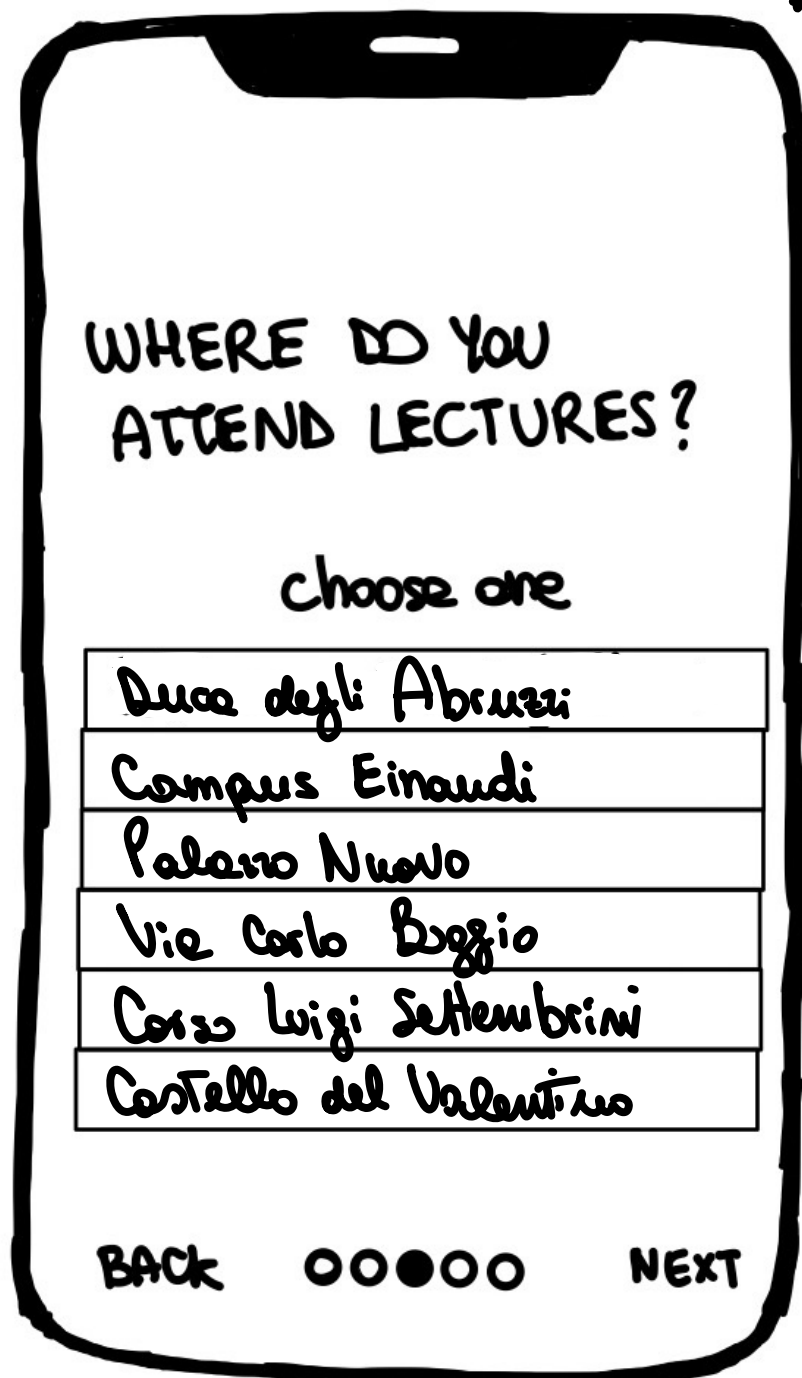 WHERE DO YOU
ATTEND LECTURES?
choose one
Duca degli Abruzzi
Campus Einaudi
Palazzo Nuovo
Via Carlo Boggio
Corso Luigi Settembrini
Castello del Valentino
BACK NEXT